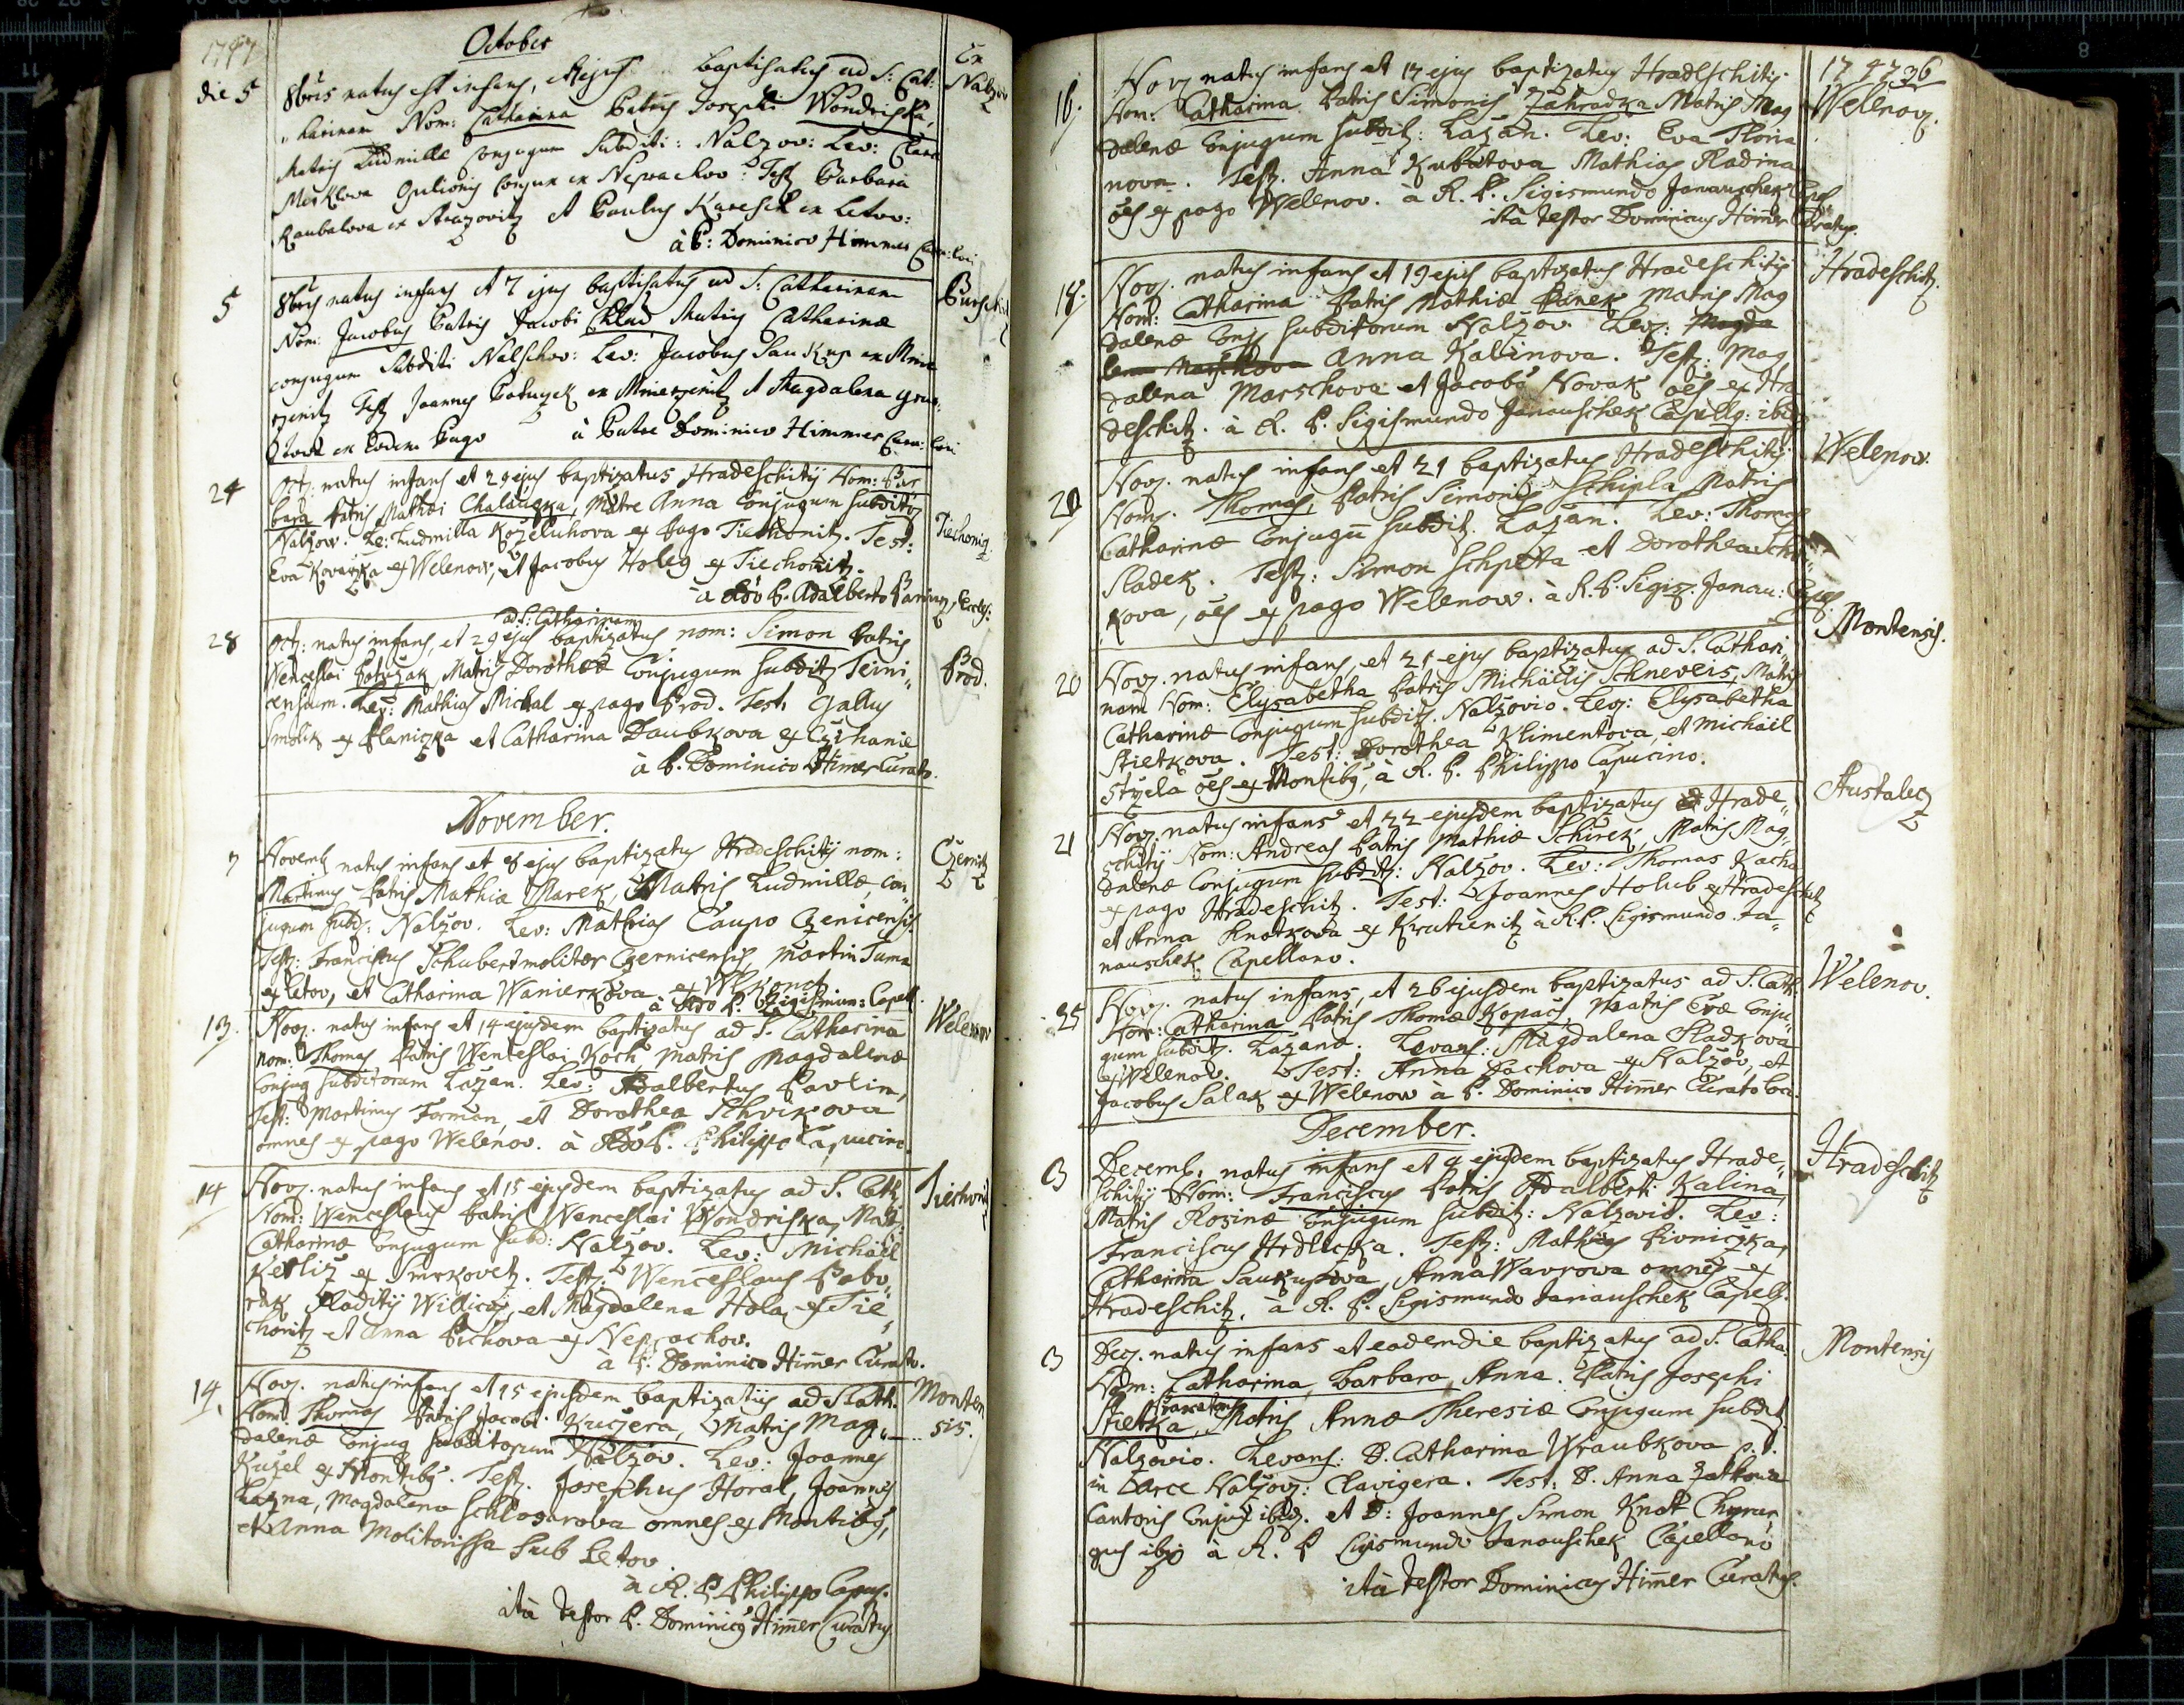 1747
October
Ex Nalzov
die 5 8bris natus est infans, ejus baptisatus ad S: Cat:
harinam Nom: Catharina Patris Josephi Wondriska,
Matris Ludmille conjugum Subditi: Nalzov: Lev: Clara
Mesklova conjux ex Neprachov: Test Barbara
Raubalova ex et Paulus Karesch ex Letov:
à P: Dominico Himmer Cura: loci
5 8bris natus infans et 7 ejus baptisatus ad S: Catharinam
Nom: Jacobus Patris Jacobi Matris Catharinæ
conjugum Subditi Nalschov: Lev: Jacobus Saukup ex
Test Joannes ex et Magdalena
ex Eodem Pago à Patre Dominico Himmer Cura: loci
24 Oct: natus infans et 29 ejus baptizatus Hradeschitij Nom: Bar
bara Patris Mathæi Chalaupka, Matre Anna Conjugum Subditis
Nalzow. Le: Ludmilla Kozeluhova ex Pago Tiechonitz. Test:
Eva Kovarzka ex Welenow, et Jacobus Holey ex Tiechonitz.
Tiechonitz
à Rdo P. Adalberto
ad S: Catharinam
28 Oct: natus infans, et 29 ejus baptizatus nom: Simon Patris
Wenceslai Potuzak, Matris Dorotheæ Conjugum Subdit Teini
censium. Lev: Mathias Michal ex pago Brod. Test. Gallus
Brod.
Smolik ex Planiczka et Catharina Daubkova ex Czihanie
à P. Dominico Himer Curato.
November.
7 Novemb natus infans et 8 ejus baptizatus Hradeschitij nom:
Czernitz
Martinus Patris Mathiæ Marek, Matris Ludmillæ, con
jugum Subd: Nalzov. Lev: Mathias Caupo Czenicensis
Test: Franciscus Schubert molitor Czernicensis, Martin Tuma
ex Letov, et Catharina Wanierkova ex
à Rdo P. Sigismun: Capell.
13. Nov. natus infans et 14 ejusdem baptizatus ad S. Catharina
Welenow
nom: Thomas Patris Wenceslai Koch, matris Magdalenæ
Conjug Subditorum Lazan. Lev: Adalbertus Pavlin,
Test: Martinus Forman, et Dorothea Schvikova
omnes ex pago Welenov. à Rdo P. Philippo Capucino.
14 Nov. natus infans et 15 ejusdem baptizatus ad S. Cath
Tiechonitz
Nom: Wenceslaus Patris Wenceslai Wondriska, Mat:
Catharinæ Conjugum Subd: Nalzov. Lev: Michäel
Kerliz ex Smrkovetz. Test: Wenceslaus Pabo
rak Pladitij Willicus, et Magdalena Hola ex Tie
chonitz et Anna Pichova ex Neprachov.
à P: Dominico Himer Curato.
14. Nov. natus infans et 15 ejusdem baptizatus ad S. Cath.
Monten
sis.
Nom: Thomas Patris Jacobi Kuczera, Matris Mag
dalenæ Conjug Subditorum Nalzov. Lev: Joannes
Kuzel ex Montibus. Test. Josephus Horal, Joannes
Lazna, Magdalena Schlosarova omnes ex Montibus,
et Anna Molitorissa sub Letov.
à R. P. Philippo Capuc.
ità testor P. Dominicus Himer Curatus
1747 36
16. Nov natus infans et 17 ejus baptizatus Hradeschitij.
Welenov.
Nom: Catharina Patris Simonis Zahradka Matris Mag
dalenæ Conjugum Subdit: Lazan. Lev: Eva Floria
nova. Test. Anna Kubatova Mathias Sladina
oes ex pago Welenov. à R. P. Sigismundo Janauschek Capel
ità testor Dominicus Himer Curatus.
18. Nov. natus infans et 19 ejus baptizatus Hradeschitij
Hradeschitz.
Nom: Catharina Patris Mathiæ Panek Matris Mag
dalenæ Conj Subditorum Nalzov. Lev: Magda
lena Marschova Anna Kalinova. Test: Mag
dalena Marschova et Jacobo Novak oes ex Hra
deschitz. à R. P. Sigismundo Janauschek Capell: ibid
20 Nov. natus infans et 21 baptizatus Hradeschitij
Welenow.
Nom. Thomas, Patris Simonis Schipla Matris
Catharinæ Conjugu Subdit. Lazan. Lev: Thomas
Sladek. Test: Simon Schpetta et Dorothea
kova, oes ex pago Welenow. à R. P. Sigis. Janau: Capel
20 Nov. natus infans, et 21 ejus baptizatus ad S. Cathari
Montensis.
nam Nom: Elysabetha Patris Michäelis Schneveis, Matris
Catharinæ Conjugum Subdit. Nalzovio. Lev: Elysabetha
Stietkova. Test: Dorothea Klimentova, et Michäel
Styela oes ex Montibus, à R. P. Philippo Capucino.
21 Nov. natus infans et 22 ejusdem baptizatus Hrade
Austalecz
schitij Nom: Andreas Patris Mathiæ Schirek, Matris Mag
dalenæ Conjugum Subdit: Nalzov. Lev: Thomas Kacha
ex pago Hradeschitz. Test: Joannes Holub ex Hradeschitz
et Anna Knotkova ex Kratienitz à R. P. Sigismundo Ja
nauschek Capellano.
25 Nov. natus infans, et 26 ejusdem baptizatus ad S. Cath.
Welenov.
Nom: Catharina Patris Thomæ Kopacs, Matris Evæ Conju
gum Subdit. Lazano. Levans: Magdalena Sladkova
ex Welenov. Test: Anna Pachova ex Nalzov, et
Jacobus Salak ex Welenow à P. Dominico Himer Curato loci.
December.
3 Decemb. natus infans et 4 ejusdem baptizatus Hrade
Hradeschitz
schitij Nom: Franciscus Patris Adalberti Kalina,
Matris Rosinæ Conjugum Subdit: Nalzovio. Lev:
Franciscus Hrdliczka. Test: Mathias Pivniczka,
Catharina Saukupova, Anna Wavrowa omnes ex
Hradeschitz. à R. P. Sigismundo Janauschek Capell.
3 Dec. natus infans et eadem die baptizatus ad S. Catha:
Montensis
Nom: Catharina, Barbara, Anna. Patris Josephi
Stietka, Matris Annæ Theresiæ Conjugum Subdit
Nalzovio. Levans: D. Catharina Wraubkova p. t.
in Larce Nalzov: Clavigera. Test: D. Anna Zatkova
Cantoris Conjux ibid. et D: Joannes Simon Knot Chyrur
gus ibid à R. P Sigismundo Janauschek Capellano
ità testor Dominicus Himer Curatus.